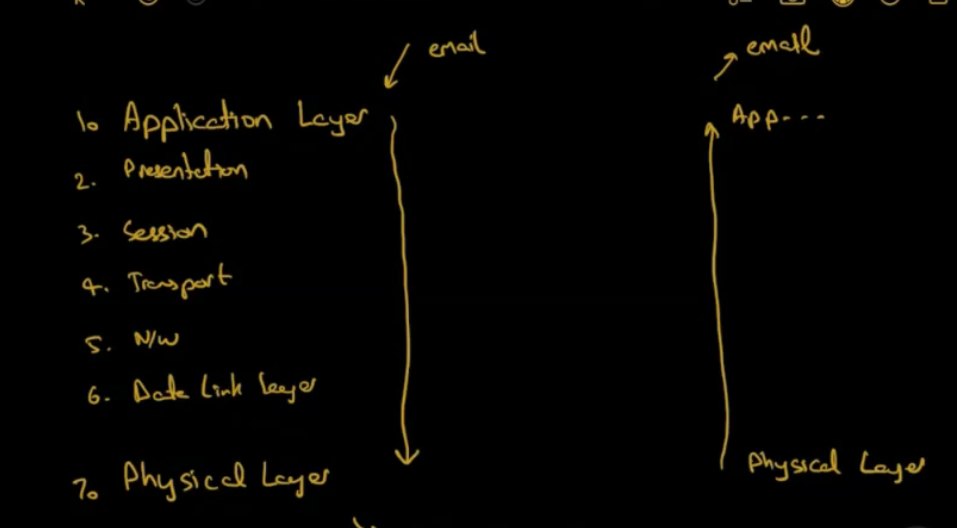 email
1. Application Layer
2. Presentation
3. Session
4. Transport
5. N/W
6. Data Link Layer
7. Physical Layer
email
App...
Physical Layer